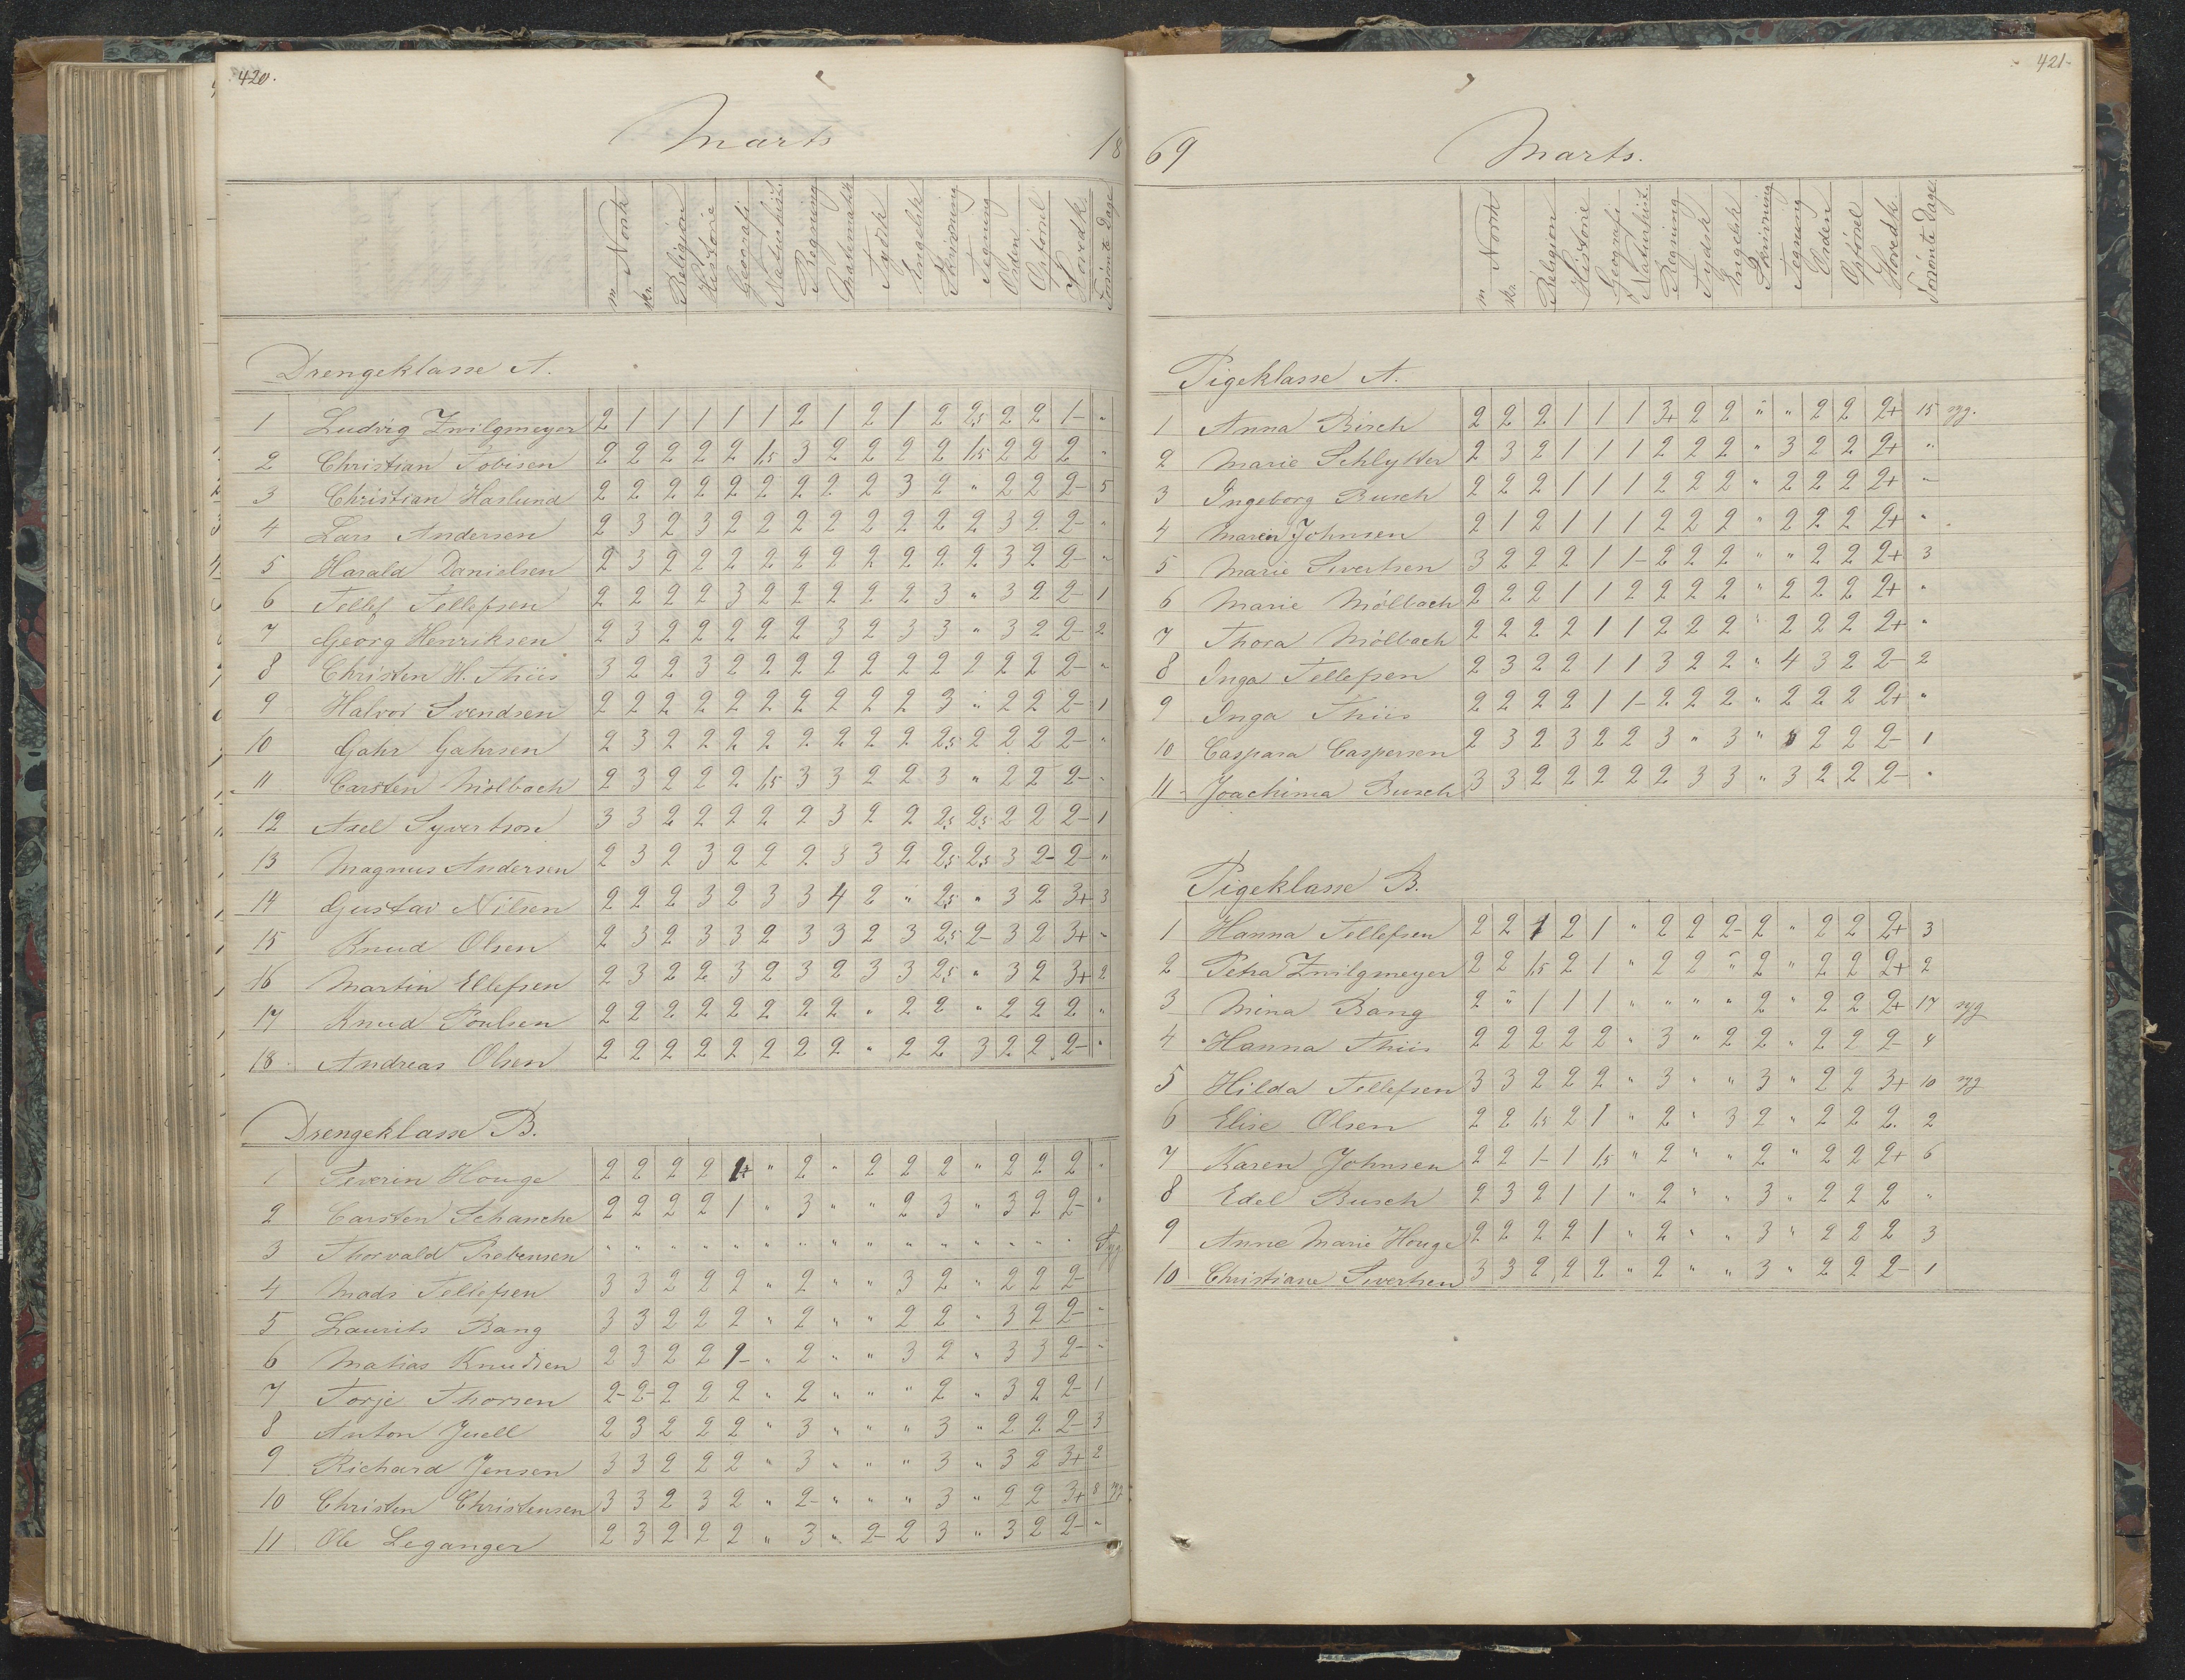 420.
Marts 18
m Norsk skr. Religion Historie Geografi Naturhist. Regning Matematik Tydsk Engelsk Skrivning Tegning Orden Opførsel Hovedk. Forsømte Dage
Drengeklasse A.
1 Ludvig Zwilgmeyer 2 1 1 1 1 1 2 1 2 1 2 2,5 2 2 1- "
2 Christian Tobisen 2 2 2 2 2 1,5 3 2 2 2 2 1,5 2 2 2 "
3 Christian Haslund 2 2 2 2 2 2 2 2 2 3 2 " 2 2 2- 5
4 Lars Andersen 2 3 2 3 2 2 2 2 2 2 2 2 3 2 2- "
5 Harald Danielsen 2 3 2 2 2 2 2 2 2 2 2 2 3 2 2- "
6 Tellef Tellefsen 2 2 2 2 3 2 2 2 2 2 3 " 3 2 2- 1
7 Georg Henriksen 2 3 2 2 2 2 2 3 2 3 3 " 3 2 2- 2
8 Christen H. Thiis 3 2 2 3 2 2 2 2 2 2 2 2 2 2 2- "
9 Halvor Svendsen 2 2 2 2 2 2 2 2 2 2 3 " 2 2 2- 1
10 Gahr Gahrsen 2 3 2 2 2 2 2 2 2 2 2,5 2 2 2 2- "
11 Carsten Mølbach 2 3 2 2 2 1,5 3 3 2 2 3 " 2 2 2- "
12 Axel Syvertson 3 3 2 2 2 2 2 3 2 2 2,5 2,5 2 2 2- 1
13 Magnus Andersen 2 3 2 3 2 2 2 3 3 2 2,5 2,5 3 2- 2- "
14 Gustav Nilsen 2 2 2 3 2 3 3 4 2 " 2,5 " 3 2 3+ 3
15 Knud Olsen 2 3 2 3 3 2 3 3 2 3 2,5 2- 3 2 3+ "
16 Martin Ellefsen 2 3 2 2 3 2 3 2 3 3 2,5 " 3 2 3+ 2
17 Knud Poulsen 2 2 2 2 2 2 2 2 " 2 2 " 2 2 2 "
18 Andreas Olsen 2 2 2 2 2 2 2 2 " 2 2 3 2 2 2- "
Drengeklasse B.
1 Severin Houge 2 2 2 2 1+ " 2 " 2 2 2 " 2 2 2 "
2 Carsten Schanche 2 2 2 2 1 " 3 " " 2 3 " 3 2 2- "
3 Thorvald Prebensen " " " " " " " " " " " " " " " Syg
4 Mads Tellefsen 3 3 2 2 2 " 2 " " 3 2 " 2 2 2-
5 Laurits Bang 3 3 2 2 2 " 2 " " 2 2 " 3 2 2- "
6 Matias Knudsen 2 3 2 2 1- " 2 " " 3 2 " 3 3 2- "
7 Torje Thorsen 2- 2- 2 2 2 " 2 " " " 2 " 3 2 2- 1
8 Anton Juell 2 3 2 2 2 " 3 " " " 3 " 2 2 2- 3
9 Richard Jensen 3 3 2 2 2 " 3 " " " 3 " 3 2 3+ 2
10 Christen Christensen 3 3 2 3 2 " 2- " " " 3 " 2 2 3+ 8 syg
11 Ole Leganger 2 3 2 2 2 " 3 " 2- 2 3 " 3 2 2- "
421.
69 Marts.
m Norsk skr. Religion Historie Geografi Naturhist. Regning Tydsk Engelsk Skrivning Tegning Orden Opførsel Hovedk. Forsømte Dage
Pigeklasse A.
1 Anna Birch 2 2 2 1 1 1 3+ 2 2 " " 2 2 2+ 15 syg.
2 Marie Schlytter 2 3 2 1 1 1 2 2 2 " 3 2 2 2+ "
3 Ingeborg Busch 2 2 2 1 1 1 2 2 2 " 2 2 2 2+ "
4 Maren Johnsen 2 1 2 1 1 1 2 2 2 " 2 2 2 2+ "
5 Marie Sivertsen 3 2 2 2 1 1- 2 2 2 " " 2 2 2+ 3
6 Marie Mölbach 2 2 2 1 1 2 2 2 2 " 2 2 2 2+ "
7 Thora Mölbach 2 2 2 2 1 1 2 2 2 " 2 2 2 2+ "
8 Inga Tellefsen 2 3 2 2 1 1 3 2 2 " 4 3 2 2- 2
9 Inga Thiis 2 2 2 2 1 1- 2 2 2 " 2 2 2 2+ "
10 Caspara Caspersen 2 3 2 3 2 2 3 " 3 " 2 2 2- 1
11 Joachima Busch 3 3 2 2 2 2 2 3 3 " 3 2 2 2- "
Pigeklasse B.
1 Hanna Tellefsen 2 2 1 2 1 " 2 2 2- 2 " 2 2 2+ 3
2 Petra Zwilgmeyer 2 2 1,5 2 1 " 2 2 " 2 " 2 2 2+ 2
3 Mina Bang 2 " 1 1 1 " " " " 2 " 2 2 2+ 17 syg
4 Hanna Thiis 2 2 2 2 2 " 3 " 2 2 " 2 2 2- 4
5 Hilda Tellefsen 3 3 2 2 2 " 3 " " 3 " 2 2 3+ 10 syg
6 Elise Olsen 2 2 1,5 2 1 " 2 " 3 2 " 2 2 2. 2
7 Karen Johnsen 2 2 1- 1 1,5 " 2 " " 2 " 2 2 2+ 6
8 Edel Busch 2 3 2 1 1 " 2 " " 3 " 2 2 2 "
9 Anne Marie Houge 2 2 2 2 1 " 2 " " 3 " 2 2 2 3
10 Christiane Sivertsen 3 3 2 2 2 " 2 " " 3 " 2 2 2- 1